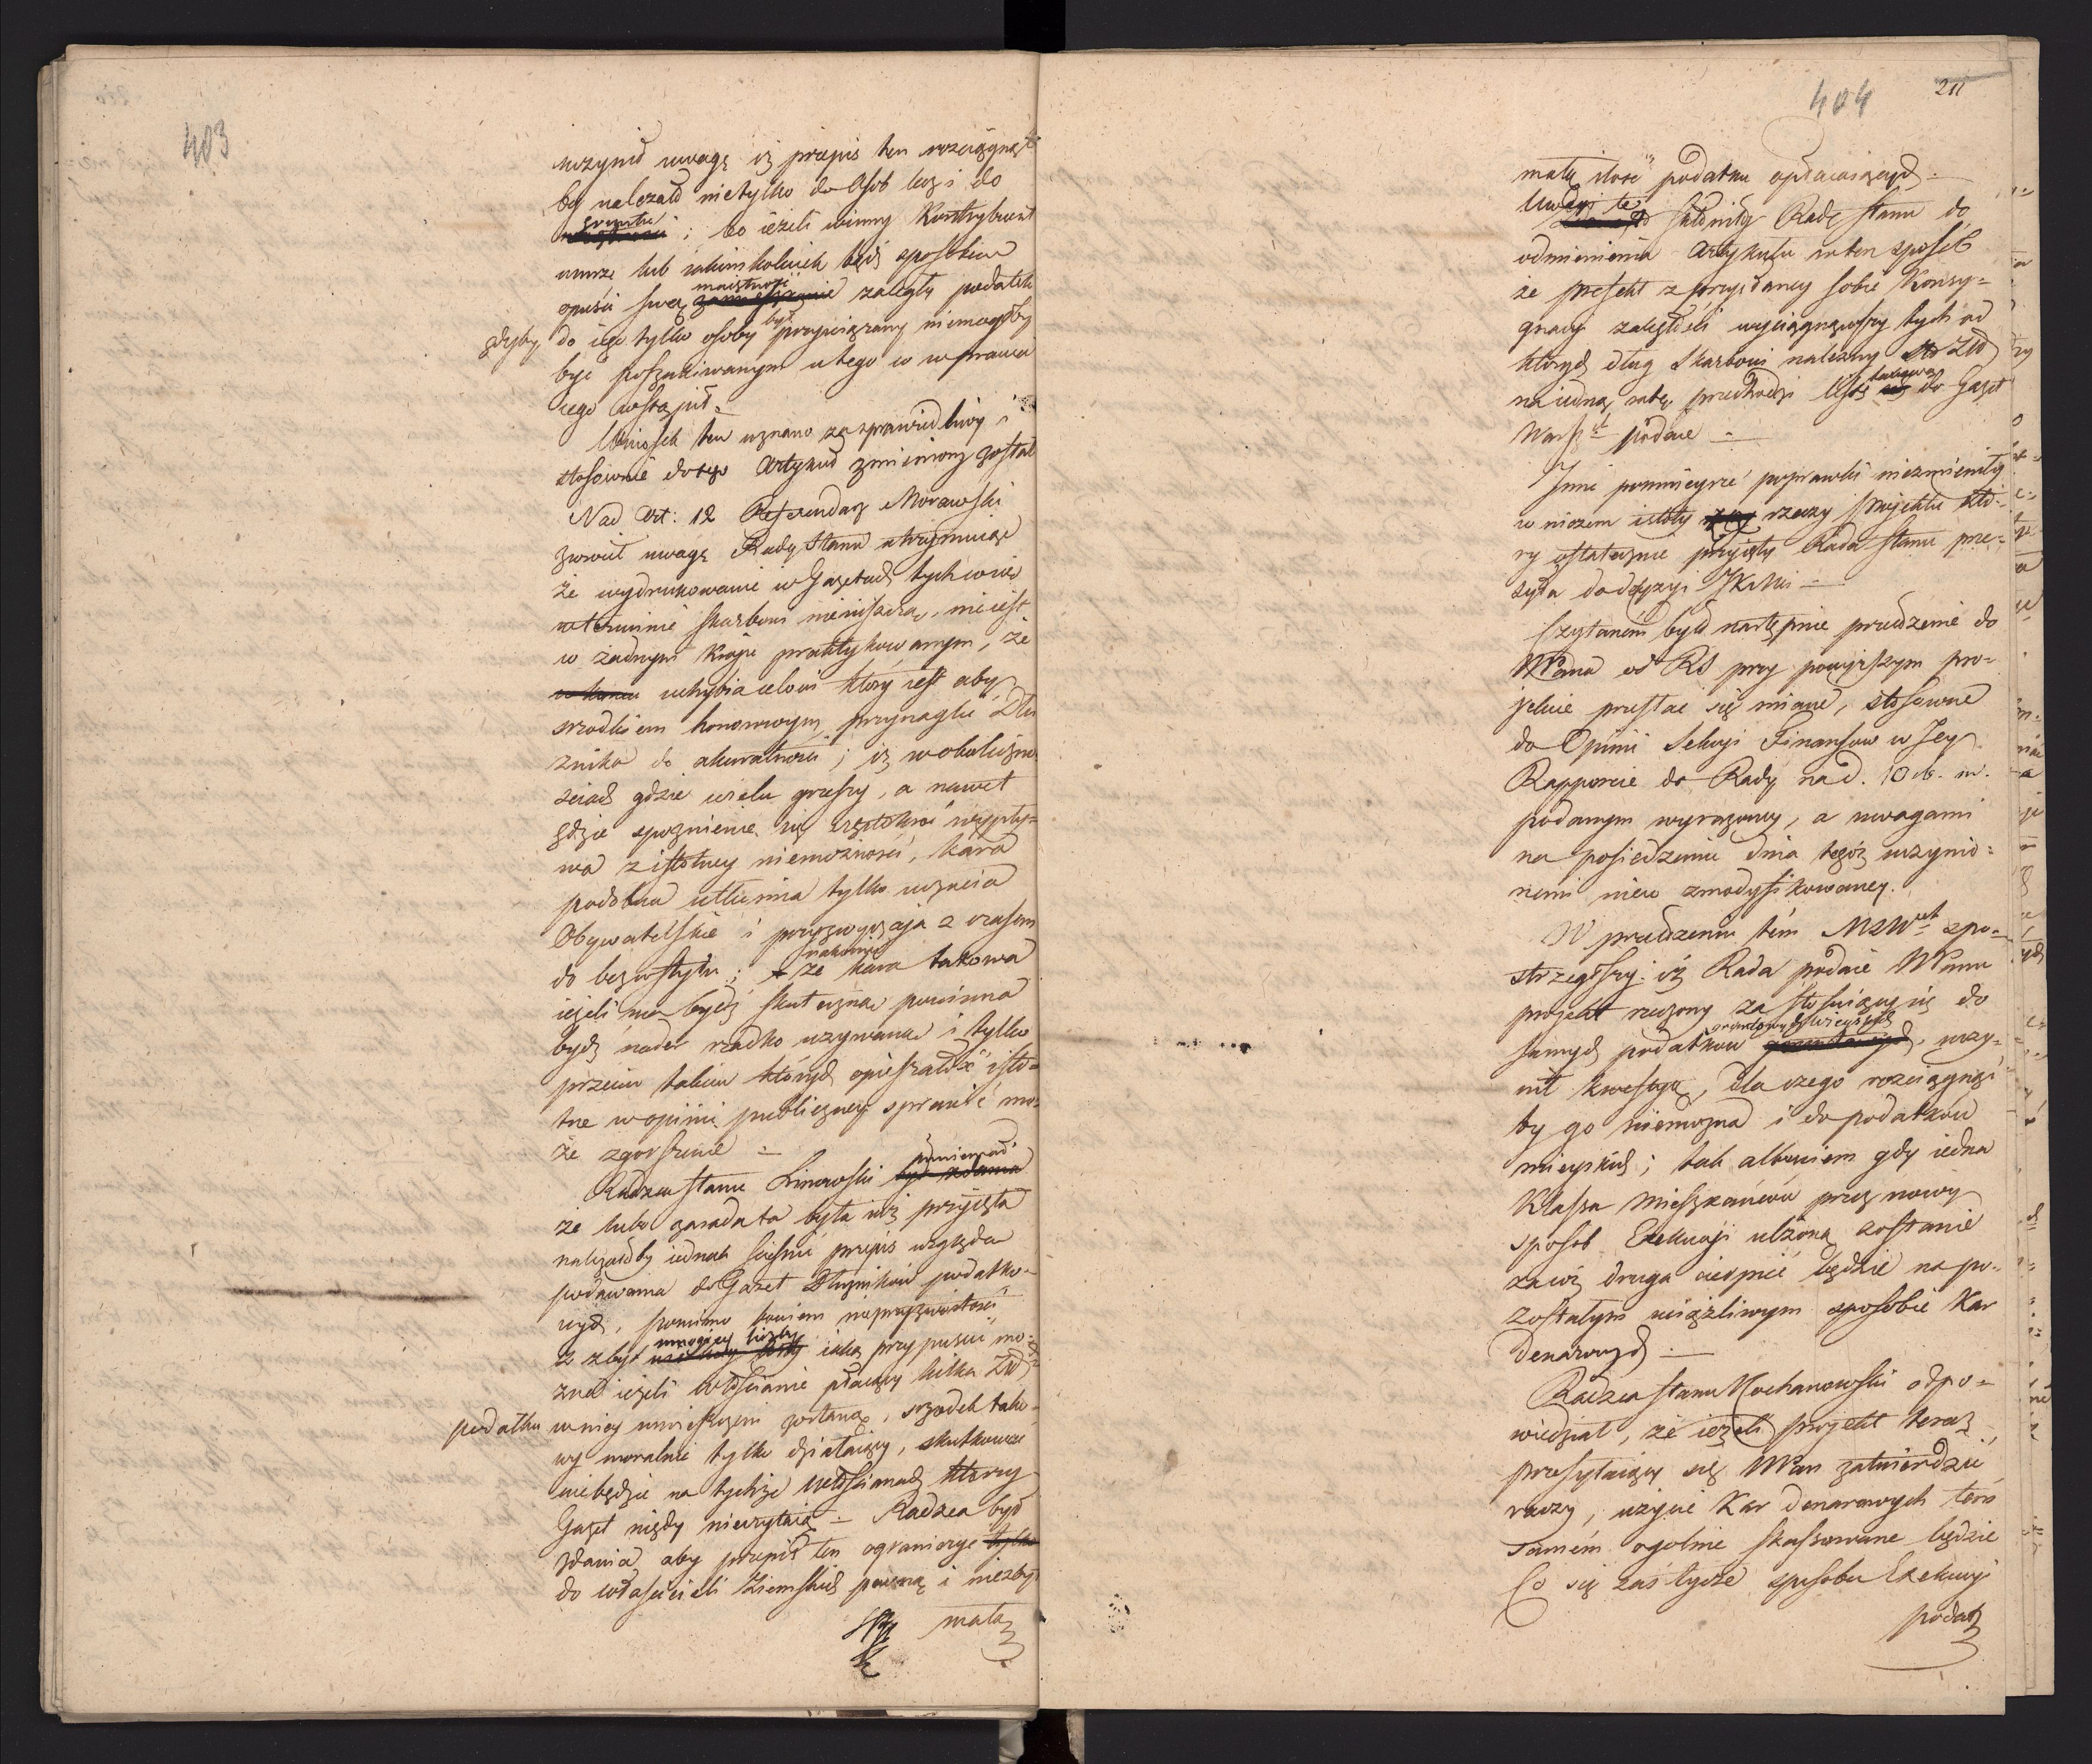 403
uczynił uwagę iż przepis ten rozciągnąć
by należało nietylko do Osób lecz i do
gruntu ; bo ieżeli winny Kontrybuent
umrze lub iakimkolwiek bądź sposobem
opuści swą maiętność zaległy podatek
gdyby do iego tylko osoby był przywiązany niemógłby
być poszukiwanym u tego co w prawa
iego wstąpił.
Wniosek ten uznano za sprawiedliwy i
stosownie do tego Artykuł zmieniony został
Nad Art: 12 Referendarz Morawski
zwrócił uwagę Rady Stanu utrzymuiąc
że wydrukowanie w Gazetach tych co się
w terminie skarbowi nieuiszczą, nie iest
w żadnym Kraju praktykowanym, że
uchybia celowi który iest aby
srzodkiem honorowym przynaglić Dłu
znika do akuratności; iż w okoliczno
sciach gdzie wielu grzeszy, a nawet
gdzie spoznienie się częstokroć wypły=
wa z istotney niemożności, kara
podobna utłumia tylko uczucia
Obywatelskie i przyzwyczaja z czasem
do bezwstydu; nakoniec że kara takowa
ieżeli ma bydź skuteczna powinna
bydź nader rzadko używana i tylko
przeciw takim których opieszałość isto=
tne w opinii publiczney sprawić mo=
że zgorszenie =
Radzca Stanu Linowski pomieniał
że lubo zasada ta była już przyjęta
należałoby iednak scieśnić przepis względem
podawania do Gazet Dłużników podatko=
wych, pomimo bowiem nieprzyzwoitości
z zbyt mnogiey liczby iaką przypuścić mo=
żna ieżeli włościanie płacący kilka Złł
podatku w niey umieszczeni zostaną, srzodek tako=
wy moralnie tylko działaiący, skutkować
niebędzie na tychże włościanach którzy
Gazet nigdy nieczytaią - Radzca był
zdania, aby przepis ten ograniczyć tylko
do właścicieli Ziemskich pewną i niezby
małą
404
211
małą ilość podatku opłacaiących -
Uwagi te skłoniły Radę stanu do
odmienienia Artykułu w ten sposób
że Prefekt z przysłaney sobie Konsy=
gnacyi zaległości wyciągnąwszy tych od
których dług Skarbowi należny sto Złł
na iedną ratę przechodzi listę takową do Gazet
Warsz. podaie -
Inne pomnieysze poprawki niezmieniły
w niczem istoty rzeczy Projektu któ=
ry ostatecznie przyjęty Rada Stanu prze=
syła do decyzyi JKMci -
Czytanem było następnie przełożenie do
NPana od RS przy powyższym pro=
jekcie przesłać się miane, stosowne
do Opinii Sekcyi Finansow w Jey
Rapporcie do Rady na d. 10 b. m.
podanym wyrażoney, a uwagami
na posiedzeniu dnia tegoż uczynio=
nemi nieco zmodyfikowaney.
W przełożeniu tém MSWet spo=
strzegłszy iż Rada podaie NPanu
projekt rzeczony za stosuiący się do
samych podatkow gruntowych wieyskich, uczy=
nił kwestyą, dla czego rozciągnąć
by go niemożna i do podatków
mieyskich; tak albowiem gdy iedna
Klassa Mieszkańców przez nowy
sposob Exekucyi ulżoną zostanie
zawsze druga cierpieć będzie na po=
zostałym uciążliwym sposobie Kar
denarowych -
Radzca Stanu Kochanowski odpo=
wiedział, że ieżeli projekt teraz
przesyłaiący się NPan zatwierdzić
raczy, użycie Kar denarowych tem
samém ogolnie skassowane będzie
Co się zaś tycze sposobu Exekucyi
podat